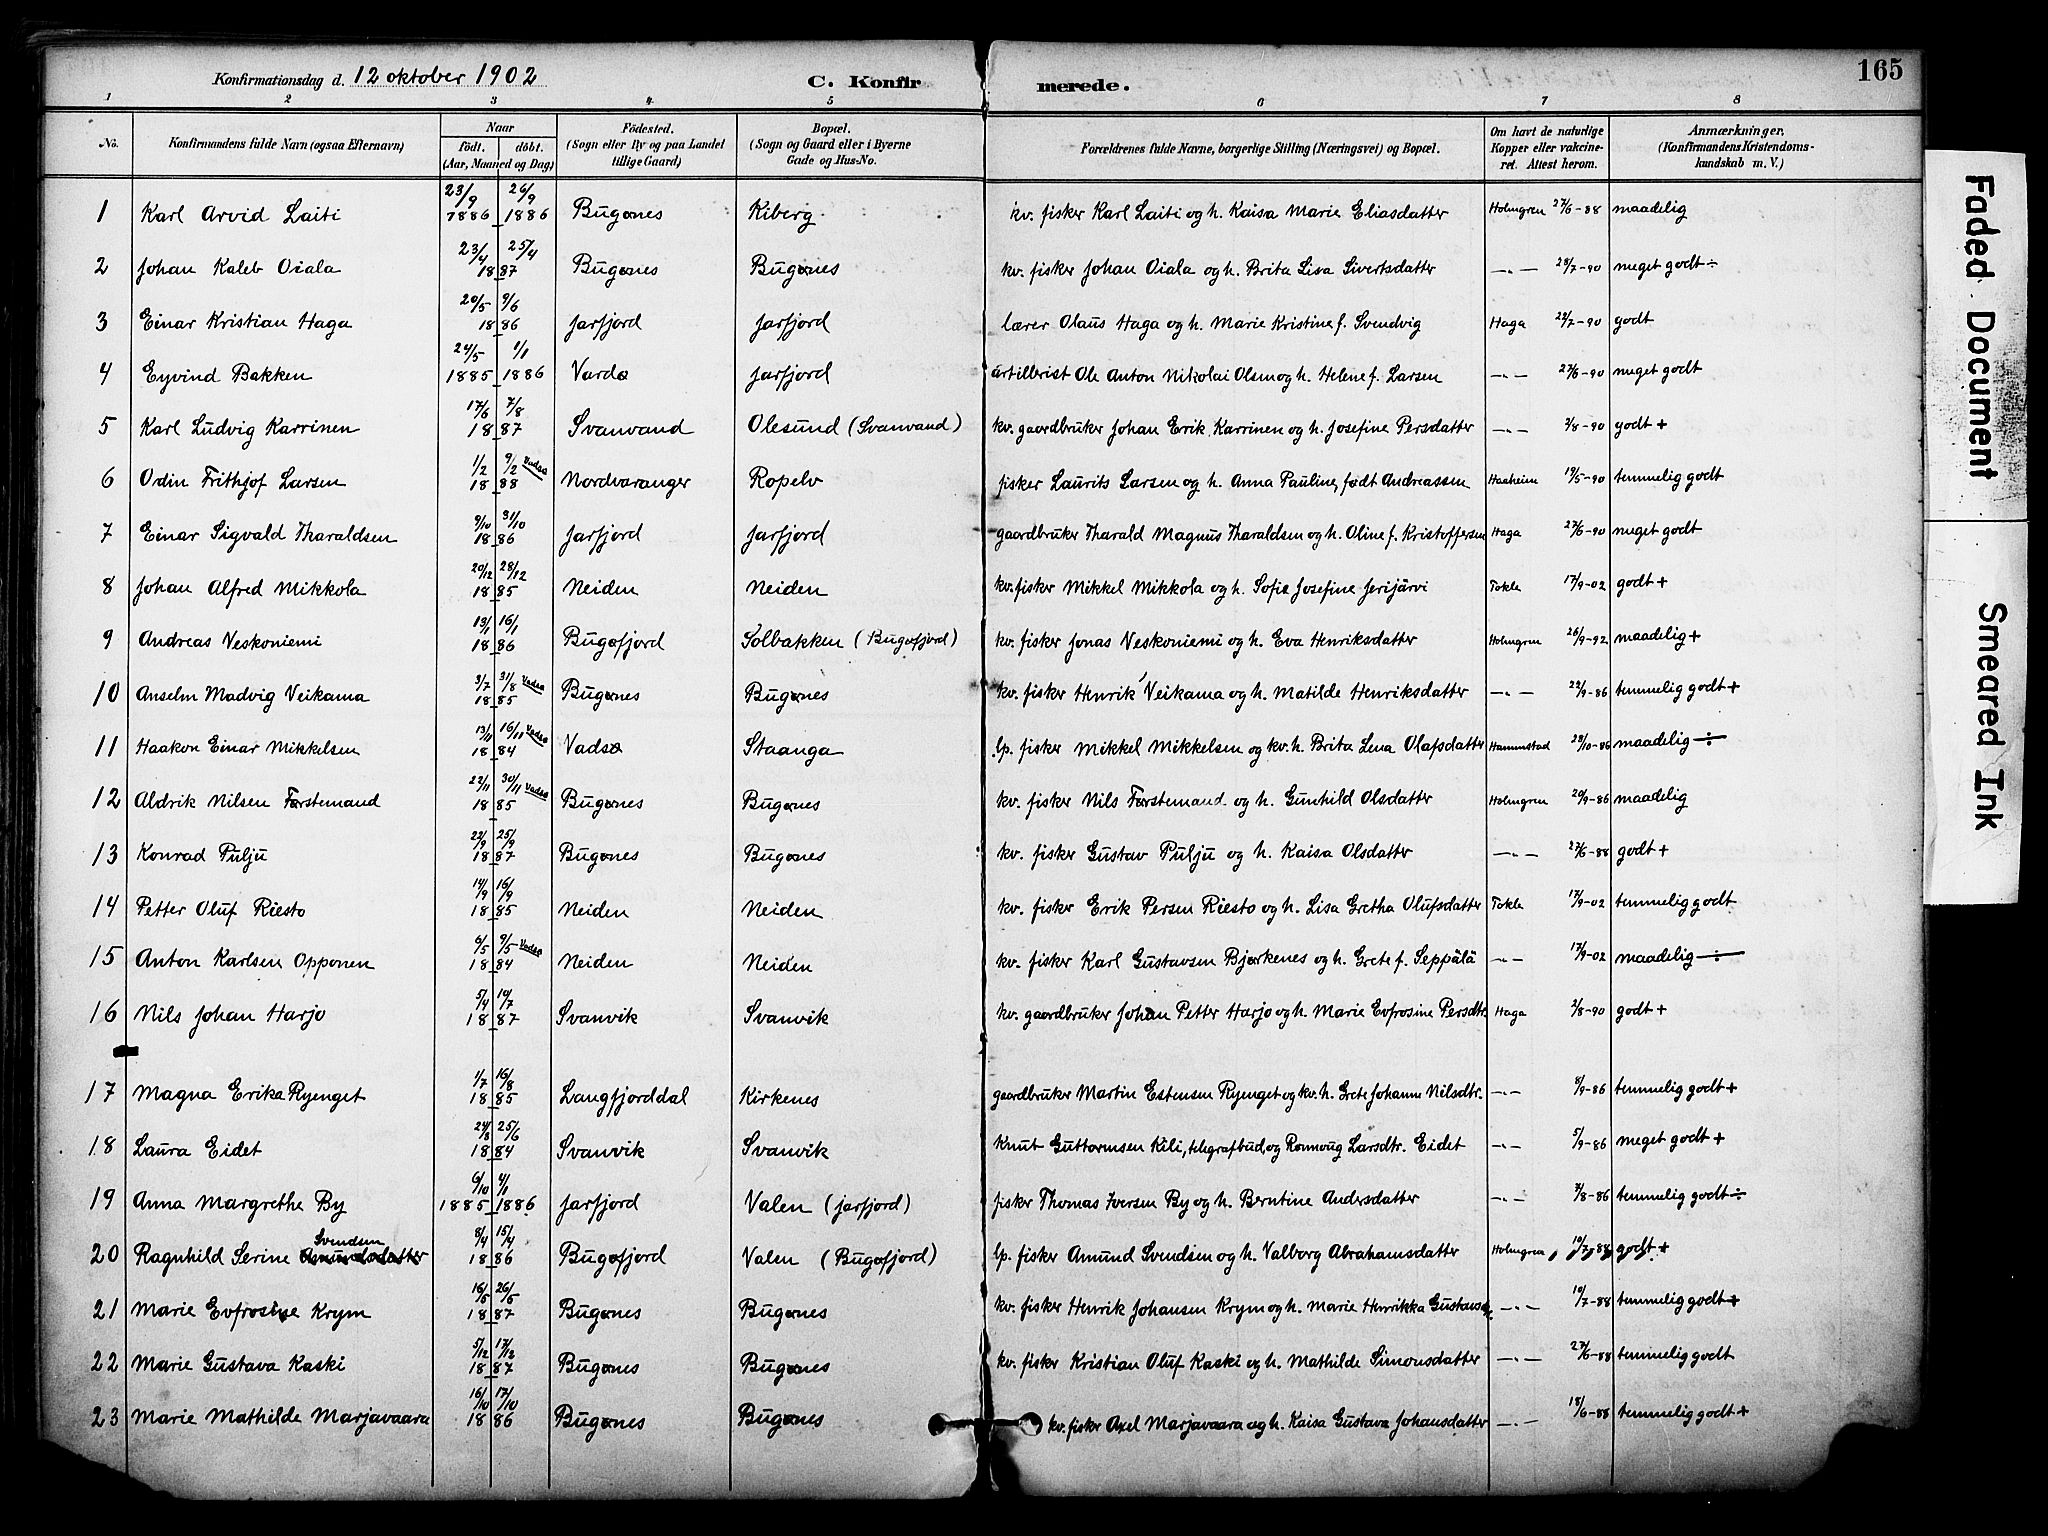 Konfirmationsdag d. 12 oktober 1902 C. Konfirmerede. 165
1 2 3 4 5 6 7 8
No. Konfirmandens fulde Navn (ogsaa Efternavn) Naar født. døbt. (Aar, Maaned og Dag) Födested. (Sogn eller By og paa Landet tillige Gaard) Bopæl. (Sogn og Gaard eller i Byerne Gade og Hus-No. Forældrenes fulde Navne, borgerlige Stilling (Næringsvei) og Bopæl. Om havt de naturlige Kopper eller vakcineret. Attest herom. Anmærkninger. (Konfirmandens Kristendomskundskab m. V.)
1 Karl Arvid Laiti 23/9 1886 26/9 1886 Bugønes Kiberg kv. fisker Karl Laiti og h. Kaisa Marie Eliasdatter Holmgren 27/6-88 maadelig
2 Johan Kaleb Oiala 23/4 25/4 1887 Bugønes Bugønes kv. fisker Johan Oiala og h. Brita Lisa Sivertsdatter -"- 28/7-90 meget godt ÷
3 Einar Kristian Haga 20/5 9/6 1886 Jarfjord Jarfjord lærer Olaus Haga og h. Marie Kristine f. Svendvig Haga 22/7-90 godt
4 Eyvind Bakken 24/5 1885 1/1 1886 Vardø Jarfjord artillrist Ole Anton Nikolai Olsen og h. Helene f. Larsen -"- 27/6-90 meget godt
5 Karl Ludvig Karrinen 17/6 7/8 1887 Svanvand Olesund (Svanvand) kv. gaardbruker Johan Erik Karrinen og h. Josefine Persdatter -"- 2/8-90 godt +
6 Odin Frithjof Larsen 1/2 9/2 Vadsø 1888 Nordvaranger Ropelv fisker Laurits Larsen og h. Anna Pauline, født Andreassen Haaheim 19/5-90 temmelig godt
7 Einar Sigvald Tharaldsen 9/10 31/10 1886 Jarfjord Jarfjord gaardbruker Tharald Magnus Tharaldsen og h. Oline f. Kristoffersen Haga 27/6-90 meget godt
8 Johan Alfred Mikkola 20/12 28/12 1885 Neiden Neiden kv. fisker Mikkel Mikkola og h. Sofie Josefine Jerijärvi Tokle 17/9-02 godt +
9 Andreas Veskoniemi 13/1 16/1 1886 Bugøfjord Solbakken (Bugøfjord) kv. fisker Jonas Veskoniemi og h. Eva Henriksdatter Holmgren 26/9-92 maadelig +
10 Anselm Madvig Veikama 3/7 31/8 Vadsø 1885 Bugønes Bugønes kv. fisker Henrik Veikama og h. Matilde Henriksdatter -"- 22/9-86 temmelig godt +
11 Haakon Einar Mikkelsen 13/11 16/11 Vadsø 1884 Vadsø Staanga lp. fisker Mikkel Mikkelsen og kv. h. Brita Lena Olafsdatter Hammstad 28/10-86 maadelig ÷
12 Aldrik Nilsen Førstemand 22/11 30/11 Vadsø 1885 Bugønes Bugønes kv. fisker Nils Førstemand og h. Gunhild Olsdatter Holmgren 20/9-86 maadelig
13 Konrad Pulju 22/9 25/9 1887 Bugønes Bugønes kv. fisker Gustav Pulju og h. Kaisa Olsdatter -"- 27/6-88 godt +
14 Petter Oluf Riesto 14/9 16/9 1885 Neiden Neiden kv. fisker Erik Persen Riesto og h. Lisa Gretha Olufsdatter Tokle 17/9-02 temmelig godt
15 Anton Karlsen Opponen 6/5 9/5 Vadsø 1884 Neiden Neiden kv. fisker Karl Gustavsen Bjørkenes og h. Grete f. Seppälä -"- 17/9-02 maadelig ÷
16 Nils Johan Harjo 5/4 10/7 1887 Svanvik Svanvik kv. gaardbruker Johan Petter Harjo og h. Marie Evfrosine Persdtr. Haga 2/8-90 godt +
17 Magna Erika Ryenget 1/7 16/8 1885 Langfjorddal Kirkenes gaardbruker Martin Estensen Ryenget og kv. h. Grete Johanne Nilsdtr. -"- 8/9-86 temmelig godt +
18 Laura Eidet 24/3 25/6 1884 Svanvik Svanvik Knut Guttormsen Kili, telegrafbud, og Rønnoug Larsdtr. Eidet -"- 5/9-86 meget godt +
19 Anna Margrethe By 6/10 1885 4/1 1886 Jarfjord Valen (Jarfjord) fisker Thomas Iversen By og h. Berntine Andersdatter -"- 7/8-86 temmelig godt ÷
20 Ragnhild Serine Amundsdatter Svendsen 8/4 15/4 1886 Bugøfjord Valen (Bugøfjord) lp. fisker Amund Svendsen og h. Valborg Abrahamsdatter Holmgren 10/7-88 godt +
21 Marie Evfrosine Krym 16/5 26/5 1887 Bugønes Bugønes kv. fisker Henrik Johansen Krym og h. Marie Henrikka Gustavsd. -"- 10/7-88 temmelig godt +
22 Marie Gustava Kaski 5/12 17/12 1887 Bugønes Bugønes kv. fisker Kristian Oluf Kaski og h. Mathilde Simonsdatter -"- 27/6-88 temmelig godt
23 Marie Mathilde Marjavaara 16/10 17/10 1886 Bugønes Bugønes kv. fisker Axel Marjavaara og h. Kaisa Gustava Johansdatter -"- 18/6-88 temmelig godt +
Faded Document
Smeared Ink